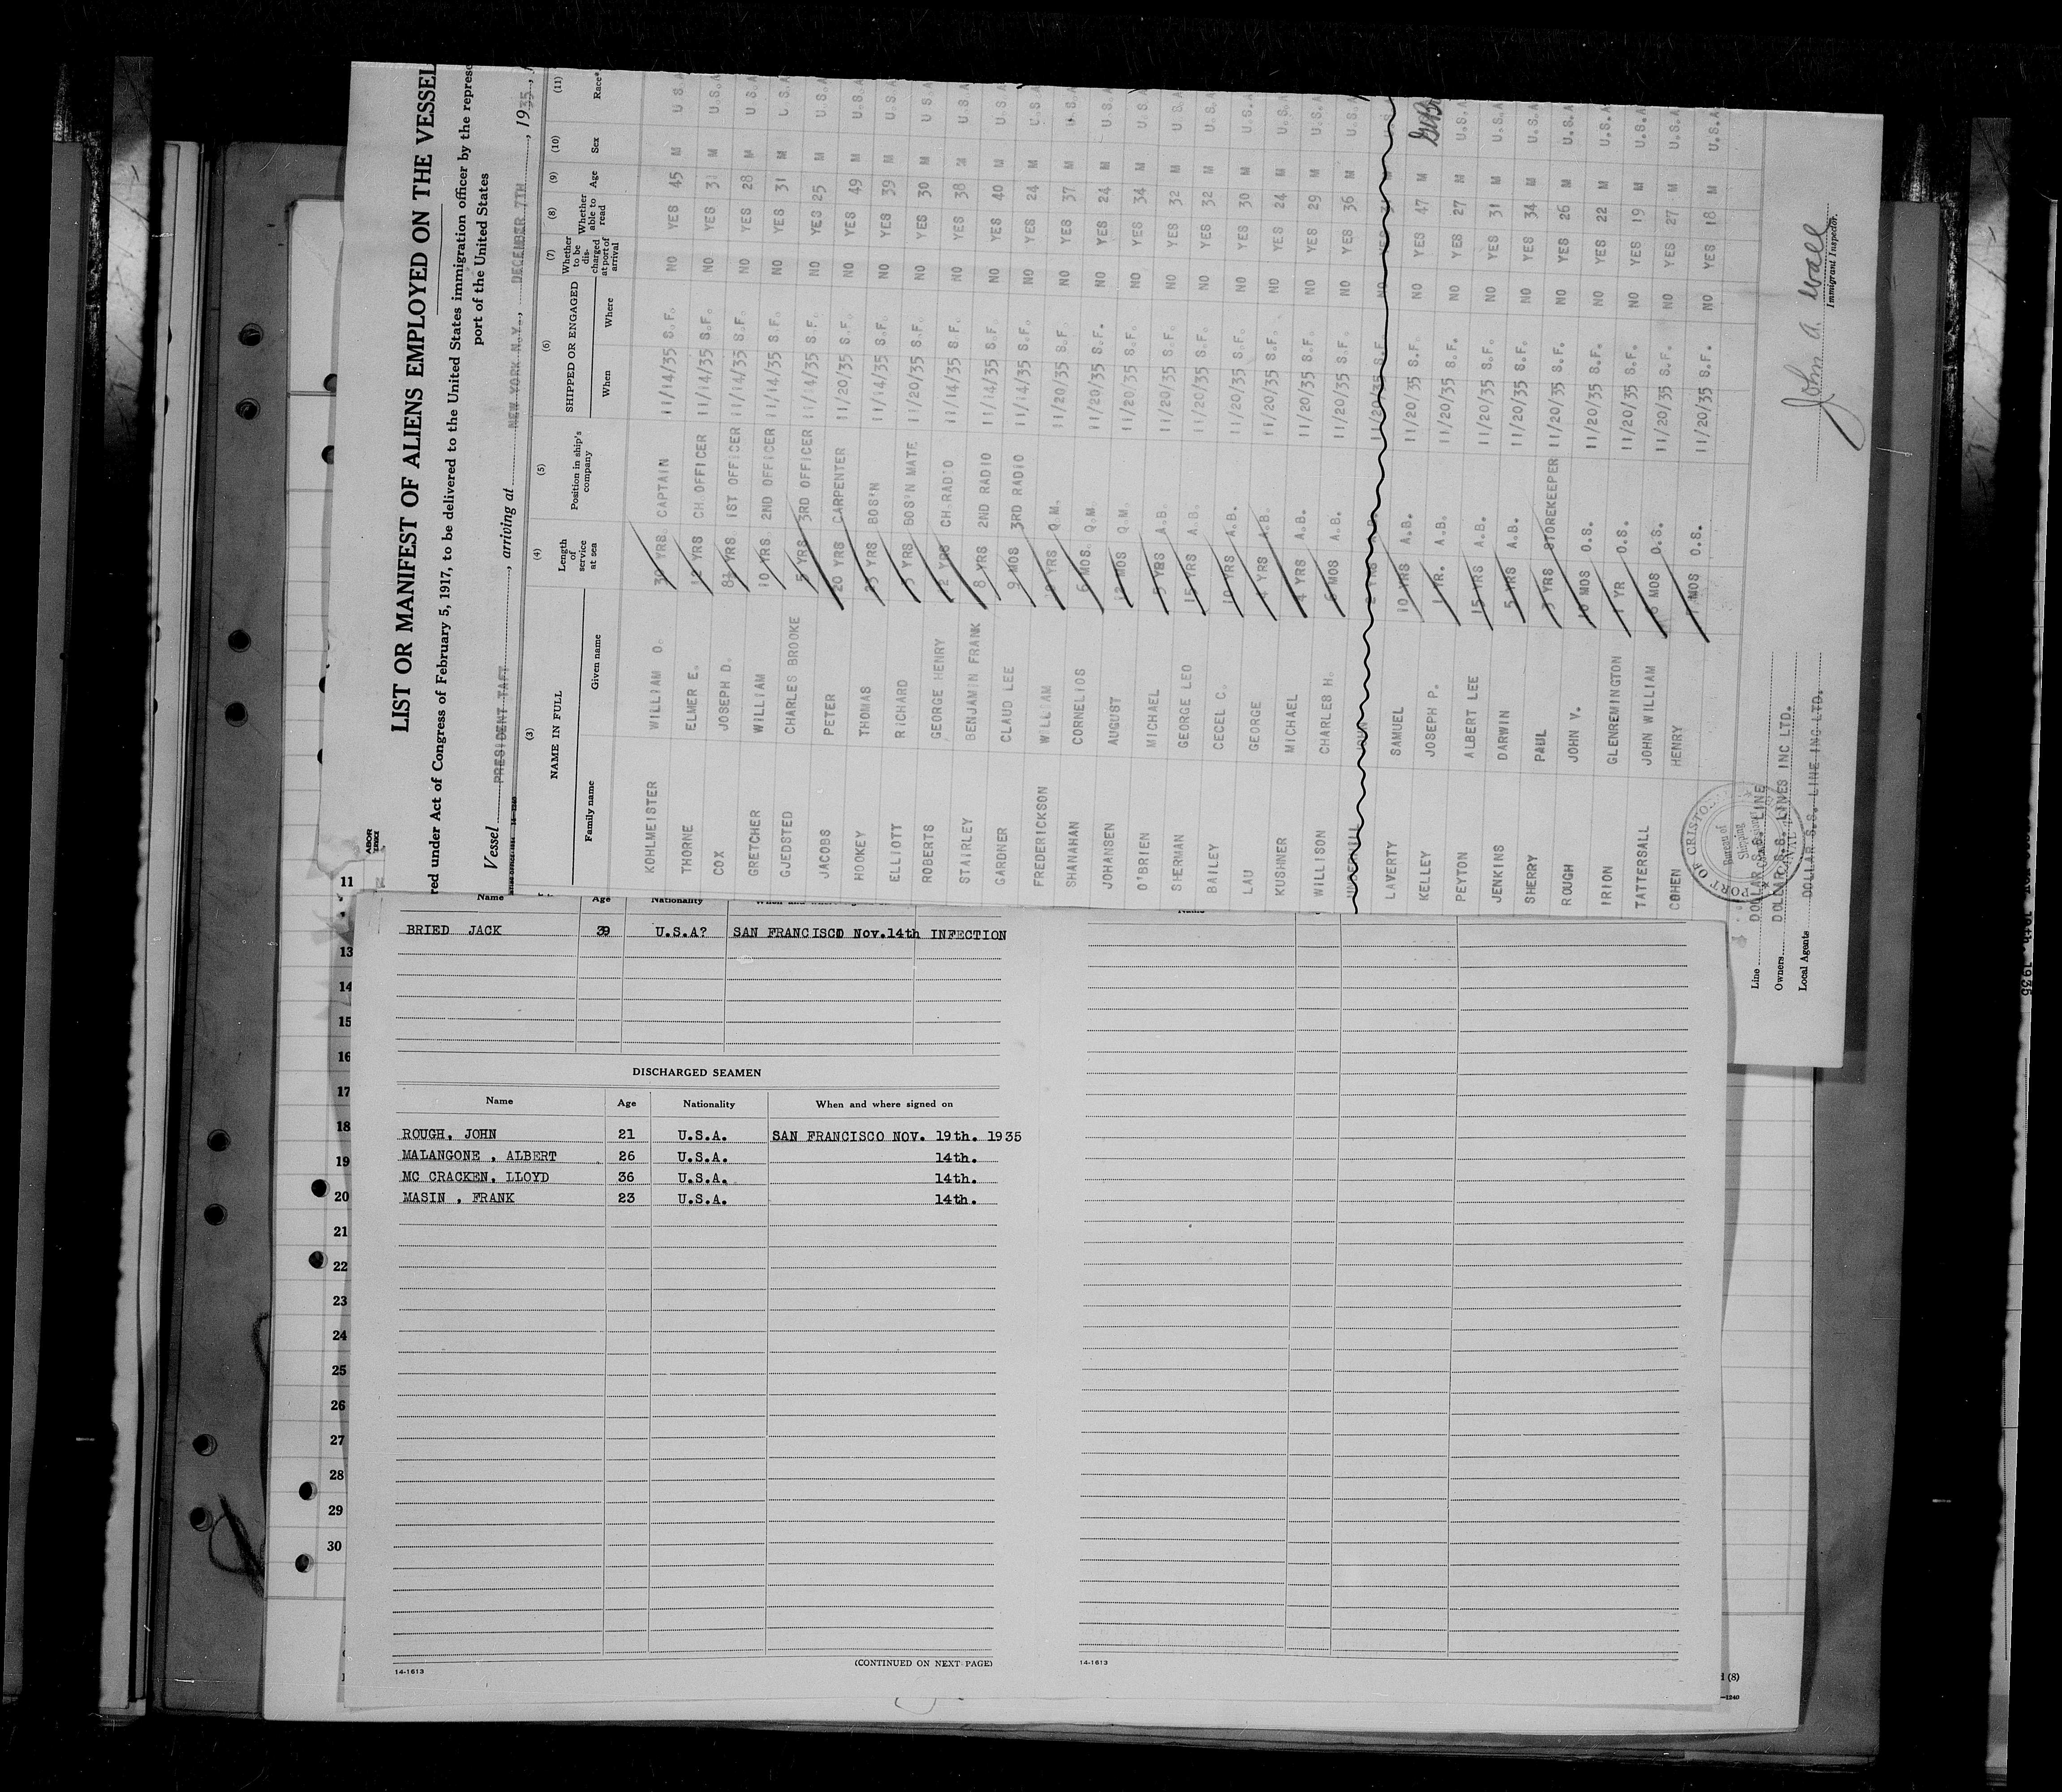 LIST OR MANIFEST OF ALIENS EMPLOYED ON THE VESSEL
red under Act of Congress of February 5, 1917, to be delivered to the United States immigration officer by the represe
port of the United States
Vessel PRESIDENT TAFT, arriving at NEW YORK N.Y., DECEMBER 7TH, 1935
(3) (4) (5) (6) (7) (8) (9) (10) (11)
NAME IN FULL Length of service at sea Position in ship's company SHIPPED OR ENGAGED Whether to be discharged at port of arrival Whether able to read Age Sex Race*
Family name Given name When Where
KOHLMEISTER WILLIAM O. 30 YRS CAPTAIN 11/14/35 S.F. NO YES 45 M U.S.A
THORNE ELMER E. 12 YRS CH.OFFICER 11/14/35 S.F. NO YES 31 M U.S.A
COX JOSEPH D. 8½ YRS 1ST OFFICER 11/14/35 S.F. NO YES 28 M U.S.A
GRETCHER WILLIAM 10 YRS 2ND OFFICER 11/14/35 S.F. NO YES 31 M U.S.A
GJEDSTED CHARLES BROOKE 5 YRS 3RD OFFICER 11/14/35 S.F. NO YES 25 M U.S.A
JACOBS PETER 20 YRS CARPENTER 11/20/35 S.F. NO YES 49 M U.S.A
HOOKEY THOMAS YRS BOS'N 11/14/35 S.F. NO YES 39 M U.S.A
ELLIOTT RICHARD 3 YRS BOS'N MATE 11/20/35 S.F. NO YES 30 M U.S.A
ROBERTS GEORGE HENRY 12 YRS CH.RADIO 11/14/35 S.F. NO YES 38 M U.S.A
STAIRLEY BENJAMIN FRANK 8 YRS 2ND RADIO 11/14/35 S.F. NO YES 40 M U.S.A
GARDNER CLAUD LEE 9 MOS 3RD RADIO 11/14/35 S.F. NO YES 24 M U.S.A
FREDERICKSON WILLIAM YRS Q.M. 11/20/35 S.F. NO YES 37 M U.S.A
SHANAHAN CORNELIOS 6 MOS. Q.M. 11/20/35 S.F. NO YES 24 M U.S.A
JOHANSEN AUGUST 12 MOS Q.M. 11/20/35 S.F. NO YES 34 M U.S.A
O'BRIEN MICHAEL 5 YRS A.B. 11/20/35 S.F. NO YES 32 M U.S.A
SHERMAN GEORGE LEO 15 YRS A.B. 11/20/35 S.F. NO YES 32 M U.S.A
BAILEY CECEL C. 10 YRS A.B. 11/20/35 S.F. NO YES 30 M U.S.A
LAU GEORGE 4 YRS A.B. 11/20/35 S.F. NO YES 24 M U.S.A
KUSHNER MICHAEL 4 YRS A.B. 11/20/35 S.F. NO YES 29 M U.S.A
WILLISON CHARLES H. 6 MOS A.B. 11/20/35 S.F. NO YES 36 M U.S.A
JOHN 2 YRS A.B. 11/20/35 S.F. NO YES M U.S.A
LAVERTY SAMUEL 10 YRS A.B. 11/20/35 S.F. NO YES 47 M
KELLEY JOSEPH P. 1 YR. A.B. 11/20/35 S.F. NO YES 27 M U.S.A
PEYTON ALBERT LEE 15 YRS A.B. 11/20/35 S.F. NO YES 31 M U.S.A
JENKINS DARWIN 5 YRS A.B. 11/20/35 S.F. NO YES 34 M U.S.A
SHERRY PAUL 3 YRS STOREKEEPER 11/20/35 S.F. NO YES 26 M U.S.A
ROUGH JOHN V. 10 MOS O.S. 11/20/35 S.F. NO YES 22 M U.S.A
IRION GLENREMINGTON 1 YR O.S. 11/20/35 S.F. NO YES 19 M U.S.A
TATTERSALL JOHN WILLIAM MOS O.S. 11/20/35 S.F. NO YES 27 M U.S.A
COHEN HENRY 7 MOS O.S. 11/20/35 S.F. NO YES 18 M U.S.A
PORT OF CRISTO
Bureau of
Shipping
Line DOLLAR S.S. LINE
Owners DOLLAR S.S. LINES INC LTD.
Local Agents DOLLAR S.S. LINE INC LTD.
John A. Wall
Immigrant Inspector.
Name Age Nationality
BRIED JACK 39 U.S.A? SAN FRANCISCO Nov.14th INFECTION
DISCHARGED SEAMEN
Name Age Nationality When and where signed on
ROUGH, JOHN 21 U.S.A. SAN FRANCISCO NOV. 19th. 1935
MALANGONE , ALBERT 26 U.S.A. 14th.
MC CRACKEN, LLOYD 36 U.S.A. 14th.
MASIN , FRANK 23 U.S.A. 14th.
(CONTINUED ON NEXT PAGE)
14-1613
14-1613
11
13
14
15
16
17
18
19
20
21
22
23
24
25
26
27
28
29
30
(8)
-1240